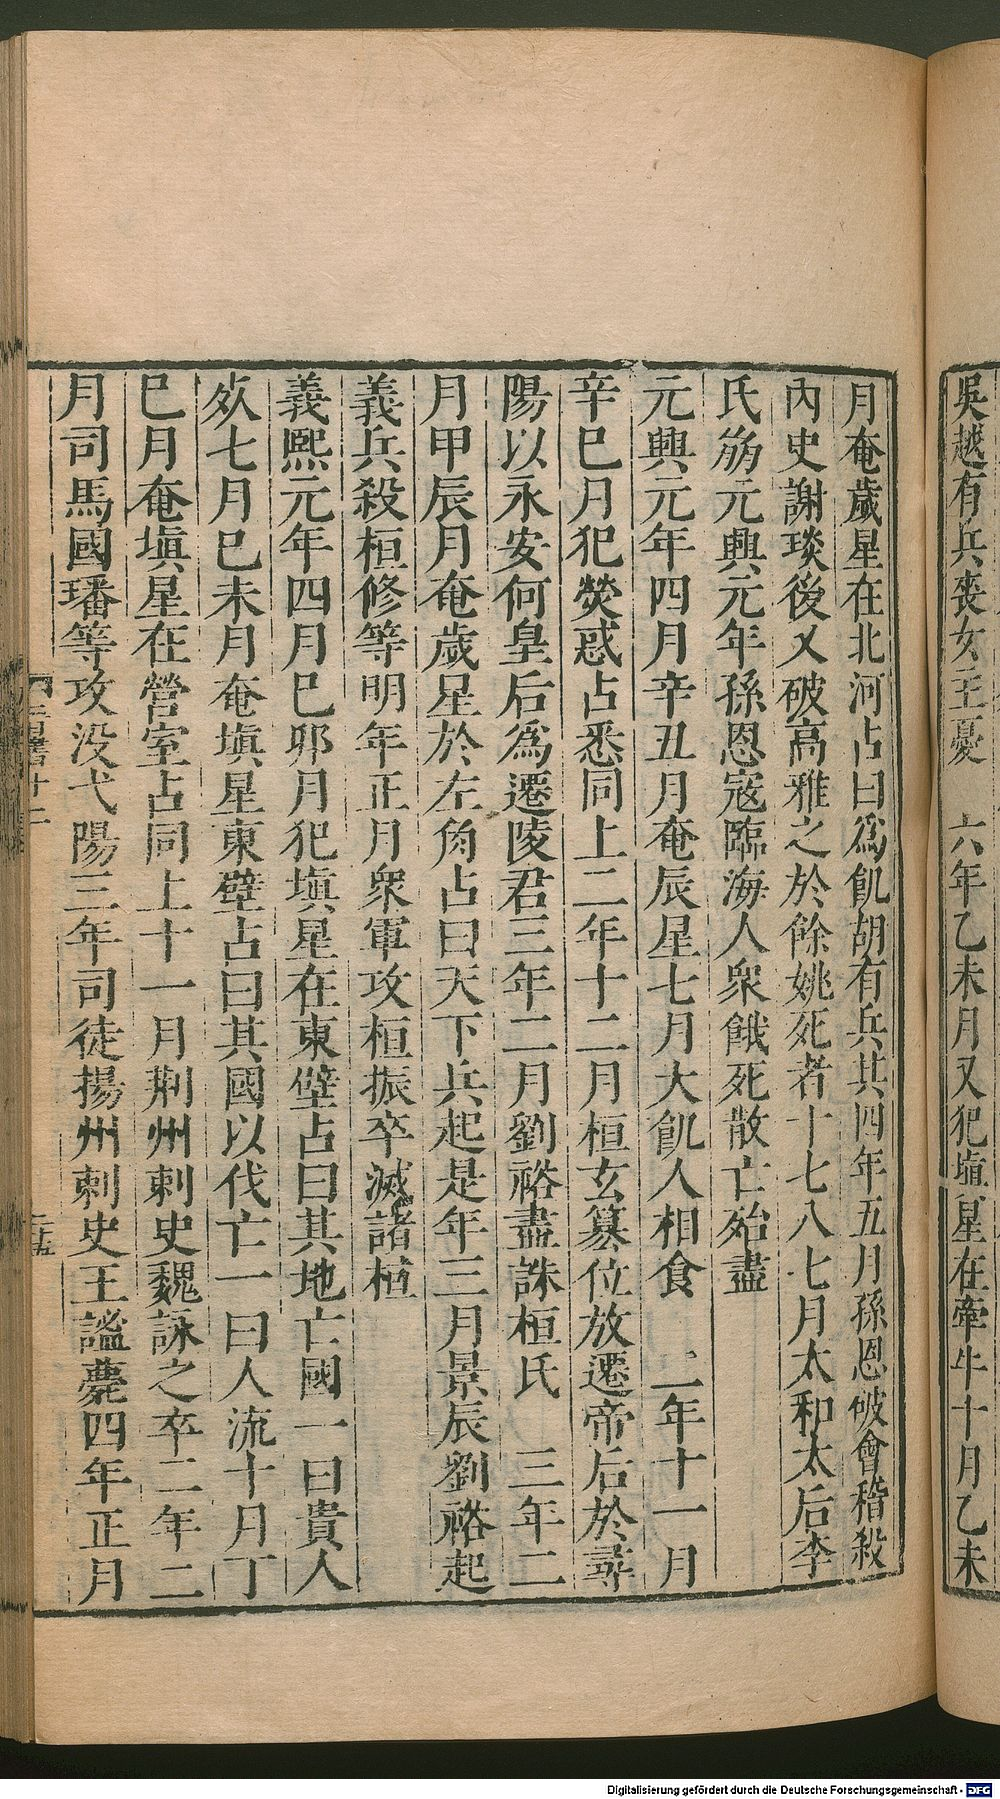 吳越有兵喪女主憂　六年乙未月又犯塡星在牽牛十月乙未
月奄歲星在北河占曰爲飢胡有兵其四年五月孫恩破會稽殺
內史謝琰後又破高雅之於餘姚死者十七八七月太和太后李
氏崩元興元年孫恩寇臨海人衆餓死散亡殆盡
元興元年四月辛丑月奄辰星七月大飢人相食　二年十一月
辛巳月犯熒惑占悉同上二年十二月桓玄篡位放遷帝后於尋
陽以永安何皇后爲零陵君三年二月劉裕盡誅桓氏　三年二
月甲辰月奄歲星於左角占曰天下兵起是年三月景辰劉裕起
義兵殺桓修等明年正月衆軍攻桓振卒滅諸桓
義熙元年四月己卯月犯塡星在東壁占曰其地亡國一曰貴人
死七月己未月奄塡星東壁占曰其國以伐亡一曰人流十月丁
巳月奄塡星在營室占同上十一月荆州刺史魏詠之卒二年二
月司馬國璠等攻沒弋陽三年司徒揚州刺史王謐薨四年正月
晉書十二
二十五
Digitalisierung gefördert durch die Deutsche Forschungsgemeinschaft - DFG